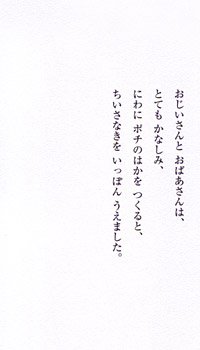 おじいさんと おばあさんは、
とても かなしみ、
にわに ポチのはかを つくると、
ちいさなきを いっぽん うえました。